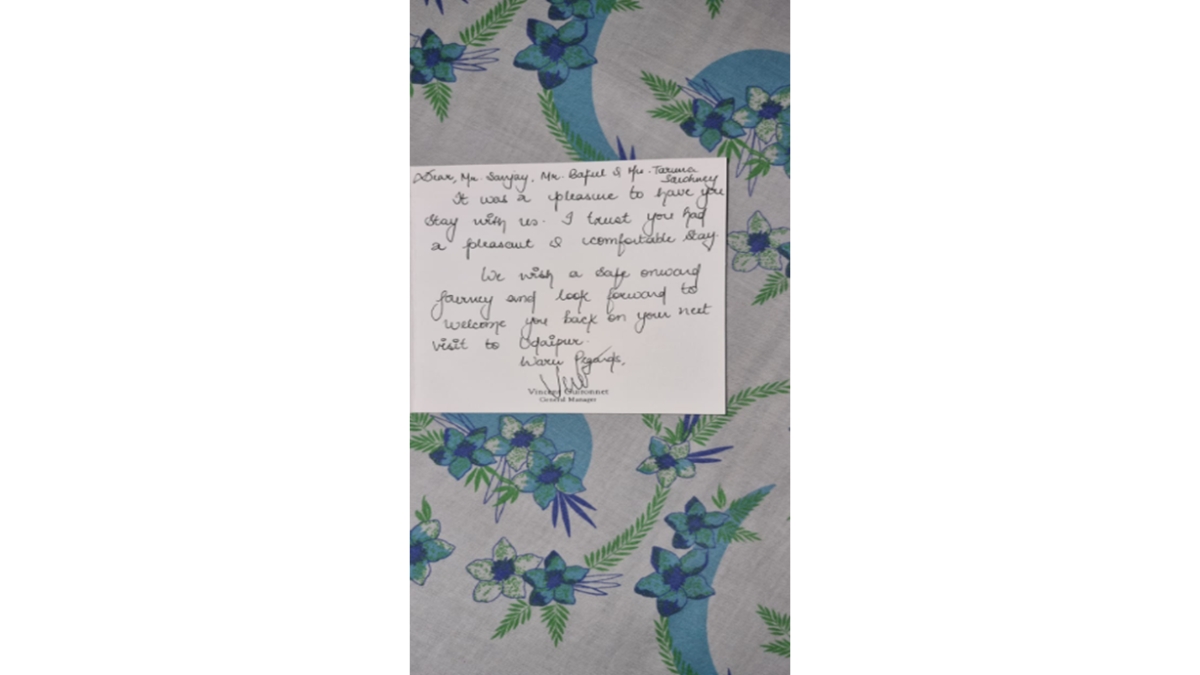 Dear, Mr. Sanjay, Mr. Baful & Mrs. Taruna
Sawhney
It was a pleasure to have you
stay with us. I trust you had
a pleasant & comfortable stay.
We wish a safe onward
journey and look forward to
welcome you back on your next
visit to Udaipur.
Warm Regards,
Vincent
General Manager